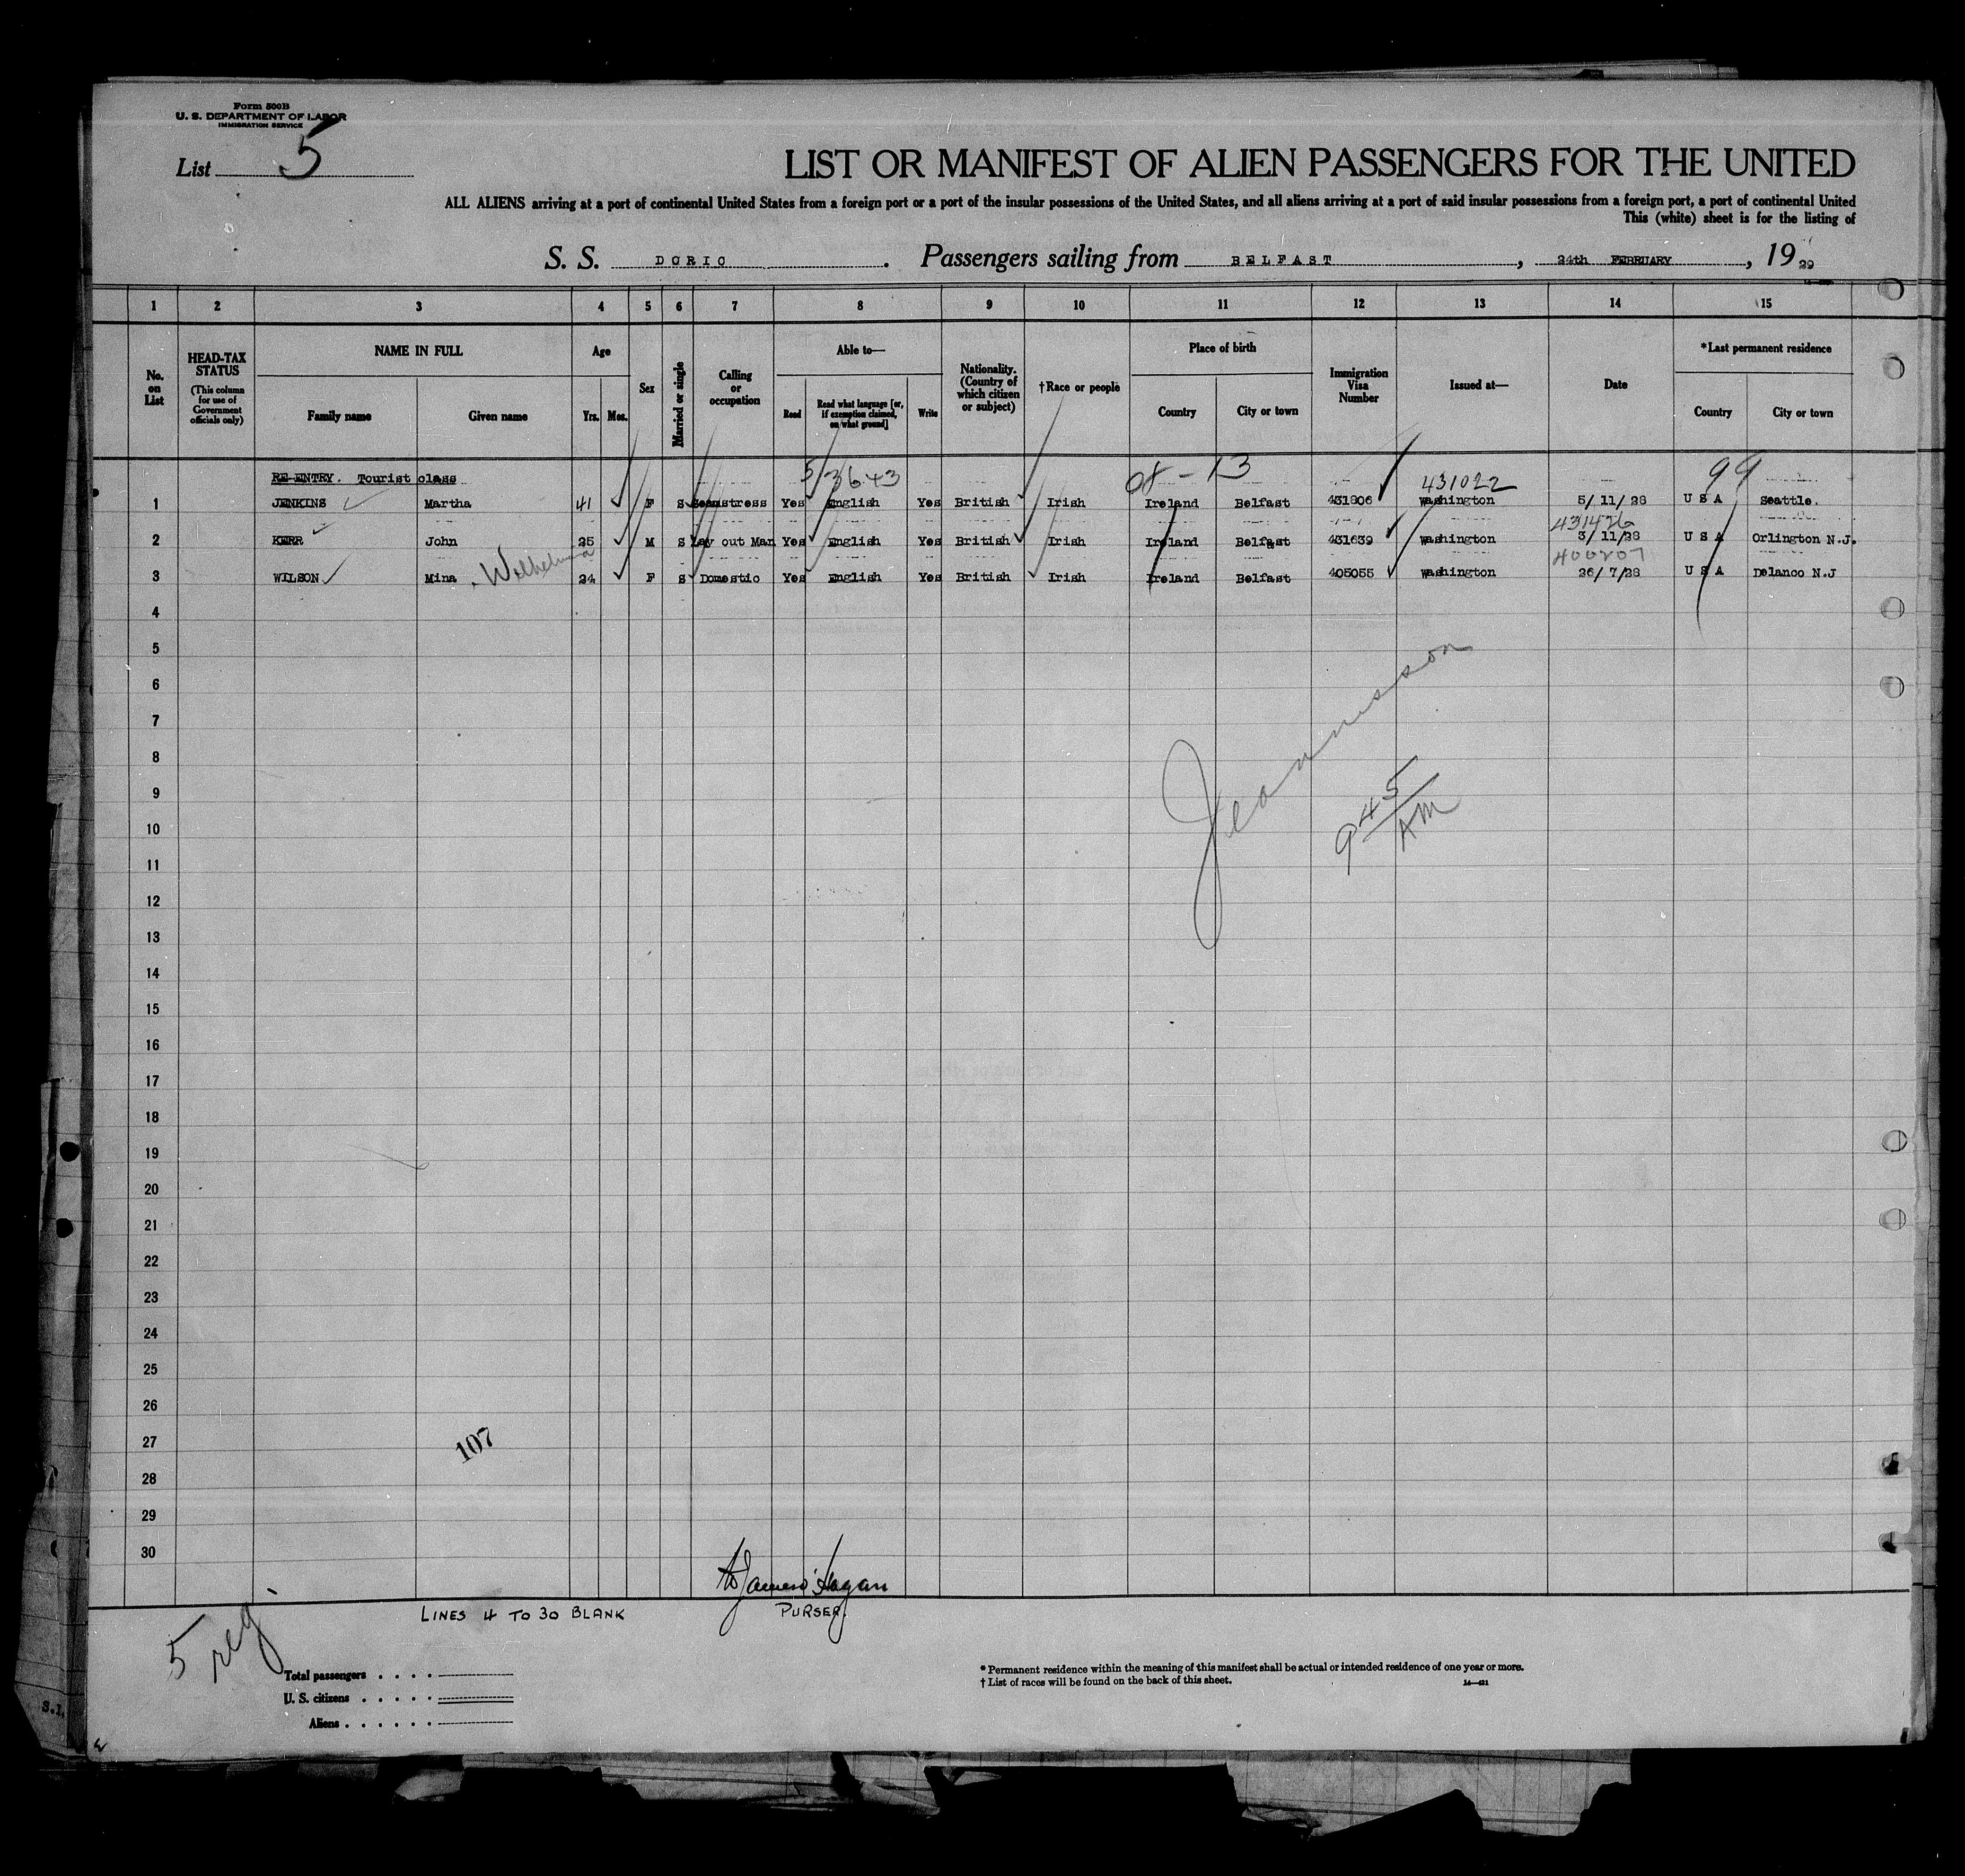 Form 500B
U. S. DEPARTMENT OF LABOR
IMMIGRATION SERVICE
List 5
LIST OR MANIFEST OF ALIEN PASSENGERS FOR THE UNITED
ALL ALIENS arriving at a port of continental United States from a foreign port or a port of the insular possessions of the United States, and all aliens arriving at a port of said insular possessions from a foreign port, a port of continental United
This (white) sheet is for the listing of
S. S. DORIC. Passengers sailing from BELFAST, 24th FEBRUARY, 19 29
1 2 3 4 5 6 7 8 9 10 11 12 13 14 15
No. on List
HEAD-TAX STATUS (This column for use of Government officials only)
NAME IN FULL
Family name Given name
Age
Yrs. Mos.
Sex
Married or single
Calling or occupation
Able to—
Read Read what language [or, if exemption claimed, on what ground] Write
Nationality. (Country of which citizen or subject)
†Race or people
Place of birth
Country City or town
Immigration Visa Number
Issued at—
Date
*Last permanent residence
Country City or town
RE-ENTRY. Tourist class 5/3643 08-13 431022 99
1 JENKINS Martha 41 F S Seamstress Yes English Yes British Irish Ireland Belfast 431806 Washington 5/11/28 U S A Seattle.
431426
2 KERR John 25 M S Lay out Man Yes English Yes British Irish Ireland Belfast 431639 Washington 3/11/28 U S A Orlington N.J.
Wilhelmina 400207
3 WILSON Mina 24 F S Domestic Yes English Yes British Irish Ireland Belfast 405055 Washington 26/7/28 U S A Delanco N.J
4
5
6
7
8
9
10
11
12
13
14
15
16
17
18
19
20
21
22
23
24
25
26
27
28
29
30
9 45 AM
107
PURSER.
LINES 4 TO 30 BLANK
5 reg.
Total passengers . . . .
U. S. citizens . . . . .
Aliens . . . . . .
* Permanent residence within the meaning of this manifest shall be actual or intended residence of one year or more.
† List of races will be found on the back of this sheet.
14—421
S.I.